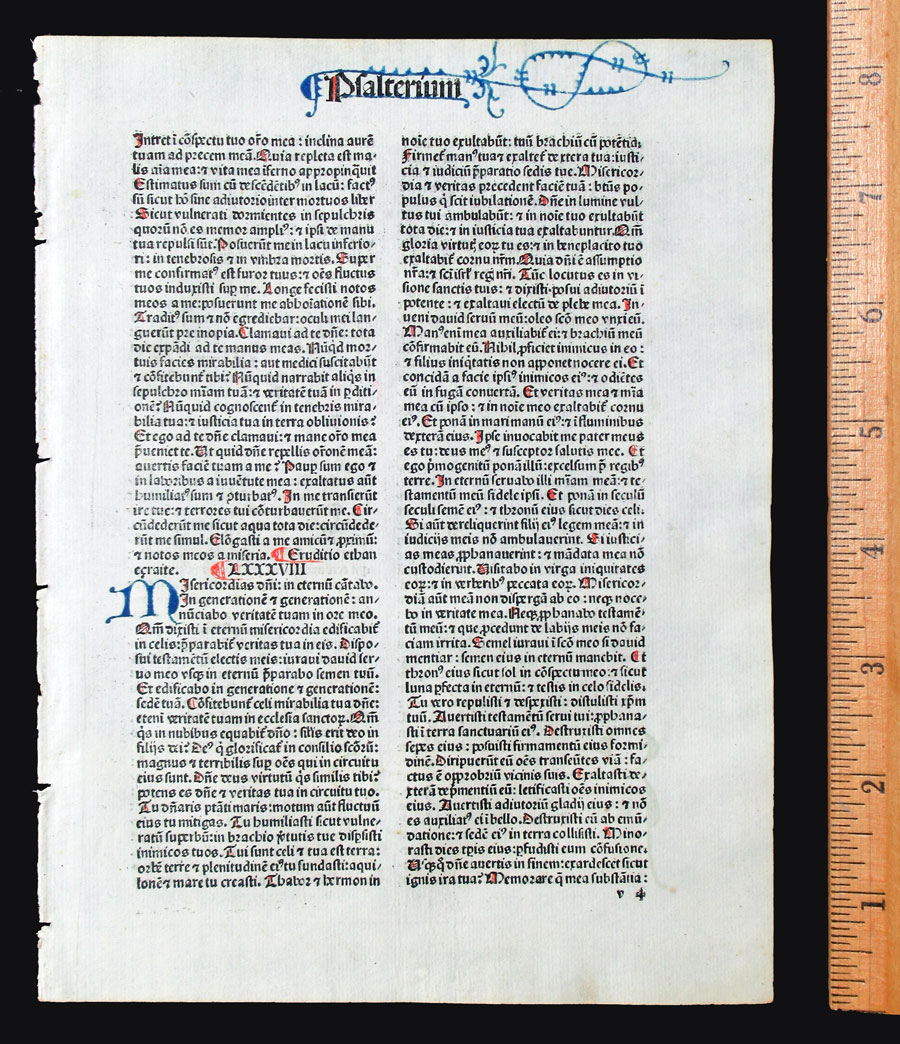 Psalterium
Intret ī cōspectu tuo orō mea : inclina aurē
tuam ad precem meā. Quia repleta est ma-
lis aīa mea: ⁊ vita mea īferno appropinq̄uit
Estimatus sum cū descēdētibꝰ in lacū: factꝰ
sū sicut hō sine adiutorio inter mortuos liber
Sicut vulnerati dormientes in sepulchris
quorū nō es memor ampliꝰ: ⁊ ipsi de manu
tua repulsi sūt. Posuerūt me in lacu inferio-
ri: in tenebrosis ⁊ in vmbra mortis. Super
me confirmatꝰ est furor tuus: ⁊ oēs fluctus
tuos induxisti sup me. Longe fecisti notos
meos a me: posuerunt me abhoīationē sibi.
Traditꝰ sum ⁊ nō egrediebar: oculi mei lan-
guerūt pre inopia. Clamaui ad te dn̄e: tota
die expādi ad te manus meas. Nūqd mor-
tuis facies mirabilia: aut medici suscitabūt
⁊ cōfitebunt tibi? Nūquid narrabit aliq̄s in
sepulchro mīam tuā: ⁊ veritatē tuā in ꝑditi-
onē? Nūquid cognoscent̄ in tenebris mira-
bilia tua: ⁊ iusticia tua in terra obliuionis?
Et ego ad te dn̄e clamaui: ⁊ mane orō mea
p̄ueniet te. Ut quid dn̄e repellis orōnē meā:
auertis faciē tuam a me? Paup sum ego ⁊
in laboribus a iuuētute mea: exaltatus aūt
humiliatꝰ sum ⁊ ꝯturbatꝰ. In me transierūt
ire tue: ⁊ terrores tui cōturbauerūt me. Cir-
cūdederūt me sicut aqua tota die: circūdede-
rūt me simul. Elōgasti a me amicū ⁊ ꝓximū:
⁊ notos meos a miseria. Eruditio ethan
eçraite. LXXXVIII
Misericordias dn̄i: in eternū cātabo.
In generationē ⁊ generationē: an-
nūciabo veritatē tuam in ore meo.
Qm̄ dixisti ī eternū misericordia edificabit̄
in celis: p̄parabit̄ veritas tua in eis. Dispo-
sui testamētū electis meis: iuraui dauid ser-
uo meo vsq̄ in eternū p̄parabo semen tuū.
Et edificabo in generatione ⁊ generationē:
sedē tuā. Cōfitebunt̄ celi mirabilia tua dn̄e:
eteni veritatē tuam in ecclesia sanctoꝝ. Qm̄
q̄s in nubibus equabit̄ dn̄o: silīs erit deo in
filijs dei? Deꝰ q̄ glorificat̄ in consilio scōrū:
magnus ⁊ terribilis sup oēs qui in circuitu
eius sunt. Dn̄e deus virtutū q̄s similis tibi?
potens es dn̄e ⁊ veritas tua in circuitu tuo.
Tu dn̄aris ptāti maris: motum aūt fluctuū
eius tu mitigas. Tu humiliasti sicut vulne-
ratū superbū: in brachio v̄tutis tue disp̄sisti
inimicos tuos. Tui sunt celi ⁊ tua est terra:
orbē terre ⁊ plenitudinē eiꝰ tu fundasti: aqui-
lonē ⁊ mare tu creasti. Thabor ⁊ hermon in
noīe tuo exultabūt: tuū brachiū cū potētia.
Firmet̄ manꝰ tua ⁊ exaltet̄ dextera tua: iusti-
cia ⁊ iudiciū p̄paratio sedis tue. Misericor-
dia ⁊ veritas precedent faciē tuā: btūs po-
pulus q̄ scit iubilationē. Dn̄e in lumine vul-
tus tui ambulabūt: ⁊ in noīe tuo exultabūt
tota die: ⁊ in iusticia tua exaltabuntur. Qm̄
gloria virtut̄ eoꝝ tu es: ⁊ in bn̄eplacito tuo
exaltabit̄ cornu nr̄m. Quia dn̄i ē assumptio
nr̄a: ⁊ scī isrl̄ reḡ nr̄i. Tūc locutus es in vi-
sione sanctis tuis: ⁊ dixisti posui adiutoriū ī
potente: ⁊ exaltaui electū de plebe mea. In-
ueni dauid seruū meū: oleo scō meo vnxi eū.
Manꝰ eni mea auxiliabit̄ ei: ⁊ brachiū meū
cōfirmabit eū. Nihil ꝓficiet inimicus in eo:
⁊ filius iniq̄tatis non apponet nocere ei. Et
concidā a facie ipsiꝰ inimicos eiꝰ: ⁊ odiētes
eū in fugā conuertā. Et veritas mea ⁊ mīa
mea cū ipso: ⁊ in noīe meo exaltabit̄ cornu
eiꝰ. Et ponā in mari manū eiꝰ: ⁊ ī fluminibus
dexterā eius. Ipse inuocabit me pater meus
es tu: deus meꝰ ⁊ susceptor salutis mee. Et
ego p̄mogenitū ponā illū: excelsum p̄ regibꝰ
terre. In eternū seruabo illi mīam meā: ⁊ te-
stamentū meū fidele ipsi. Et ponā in seculū
seculi semē eiꝰ: ⁊ thronū eius sicut dies celi.
Si aūt dereliquerint filij eiꝰ legem meā: ⁊ in
iudicijs meis nō ambulauerint. Si iustici-
as meas ꝓphanauerint: ⁊ mādata mea nō
custodierint. Uisitabo in virga iniquitates
eoꝝ: ⁊ in verberibꝰ peccata eoꝝ. Misericor-
diā aūt meā non dispergā ab eo: neq̄ noce-
bo in veritate mea. Neq̄ ꝓphanabo testamē-
tū meū: ⁊ que ꝓcedunt de labijs meis nō fa-
ciam irrita. Semel iuraui ī scō meo si dauid
mentiar: semen eius in eternū manebit. Et
thronꝰ eius sicut sol in cōspectu meo: ⁊ sicut
luna ꝑfecta in eternū: ⁊ testis in celo fidelis.
Tu vero repulisti ⁊ despexisti: distulisti xp̄m
tuū. Auertisti testamētū serui tui: ꝓphana-
sti in terra sanctuariū eiꝰ. Destruxisti omnes
sepes eius: posuisti firmamentū eius formi-
dinē. Diripuerūt eū oēs transeūtes viā: fa-
ctus ē opprobriū vicinis suis. Exaltasti de-
xterā dep̄mentiū eū: letificasti oēs inimicos
eius. Auertisti adiutoriū gladij eius: ⁊ nō
es auxiliatꝰ ei ī bello. Destruxisti eū ab emū-
datione: ⁊ sedē eiꝰ in terra collisisti. Mino-
rasti dies tp̄is eius: ꝑfudisti eum cōfusione.
Usq̄q̄ dn̄e auertis in finem: exardescet sicut
ignis ira tua? Memorare q̄ mea substātia:
v 4
8
7
6
5
4
3
2
1